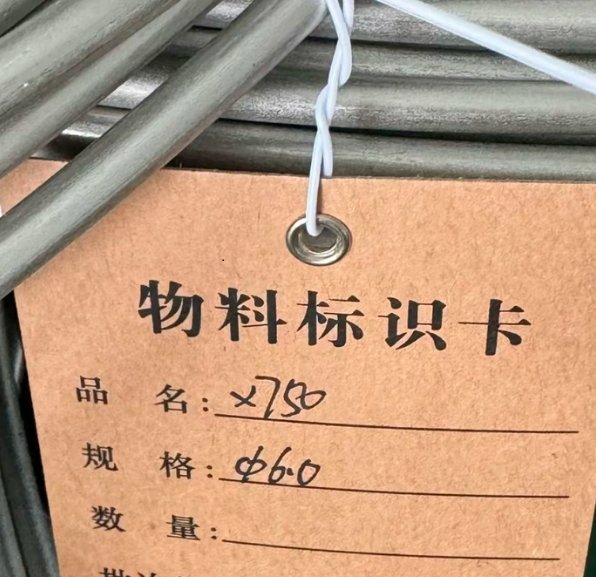 物料标识卡
品 名: X750
规 格: Φ6.0
数 量: